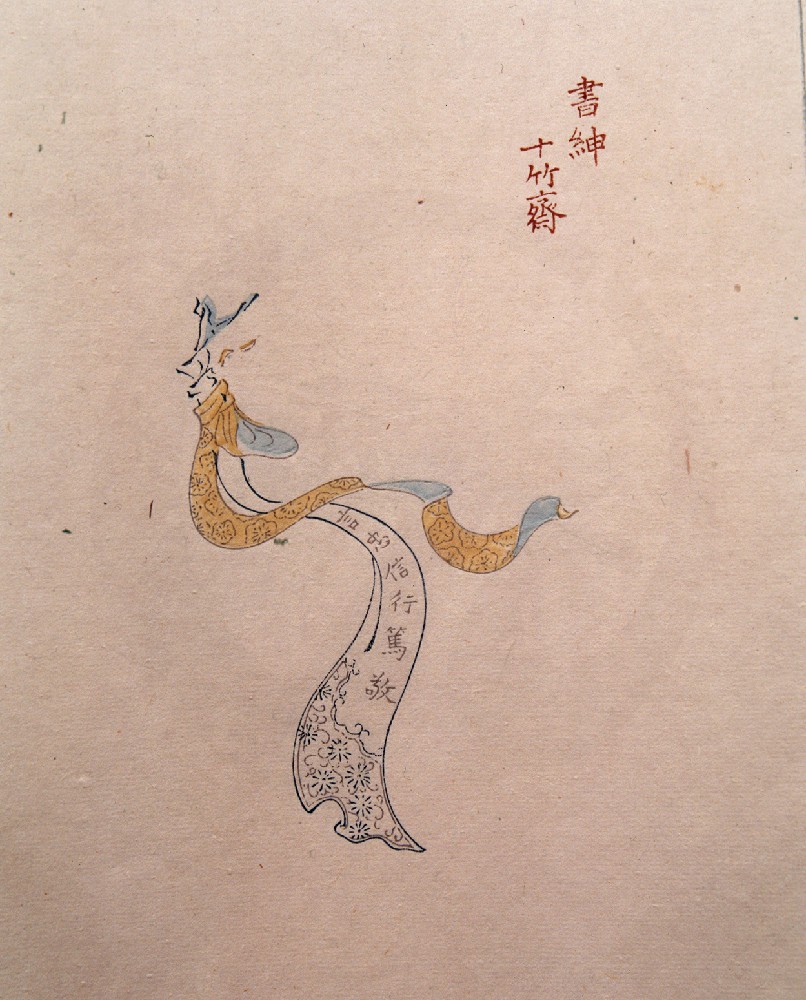 書紳
十竹齋
言忠信行篤敬